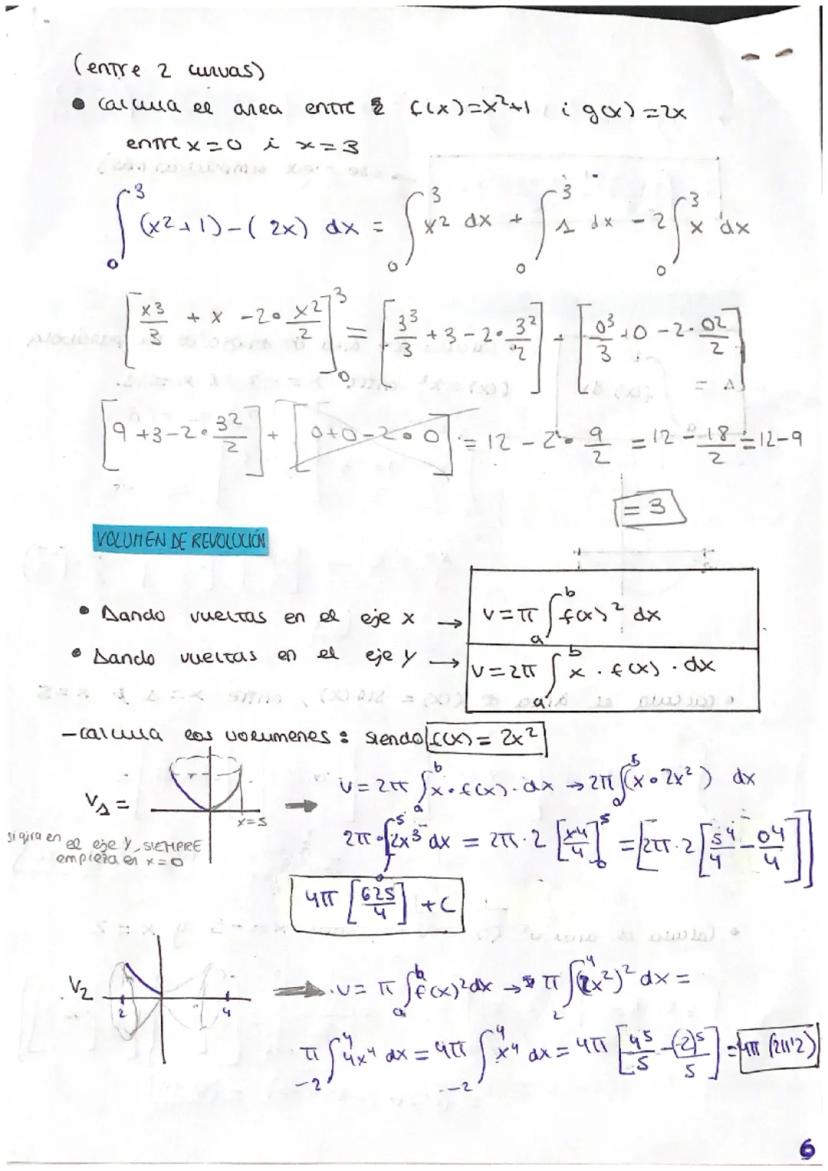 (entre 2 curvas)
• calcula el area entre f(x)=x²+1 i g(x)=2x
entre x=0 i x=3
∫₀³ (x²+1)-(2x) dx = ∫₀³ x² dx + ∫₀³ 1 dx - 2∫₀³ x dx
[x³/3 + x - 2•x²/2]₀³ = [3³/3 + 3 - 2•3²/2] - [0³/3 + 0 - 2•02/2]
[9+3-2•3²/2] + [0+0-2•0] = 12 - 2•9/2 = 12 - 18/2 = 12-9
= 3
VOLUMEN DE REVOLUCIÓN
• Dando vueltas en el eje x → v=π ∫ₐᵇ f(x)² dx
• Dando vueltas en el eje y → v=2π ∫ₐᵇ x · f(x) · dx
-calcula los volumenes: siendo f(x) = 2x²
V₁ = x=5 → v=2π ∫ₐᵇ x•f(x)·dx → 2π∫₀⁵(x•2x²) dx
si gira en el eje Y, SIEMPRE
empieza en x=0
2π•∫₀⁵ 2x³ dx = 2π·2 [x4/4]₀⁵ = [2π·2 [5⁴/4 - 04/4]]
4π [625/4] + C
V₂ 2 4 → v= π ∫ₐᵇ f(x)²dx → π ∫₂⁴(2x²)² dx =
π ∫₋₂⁴ 4x⁴ dx = 4π ∫₋₂⁴ x⁴ dx = 4π [45/5 - (-2)⁵/5] = 4π (211'2)
6